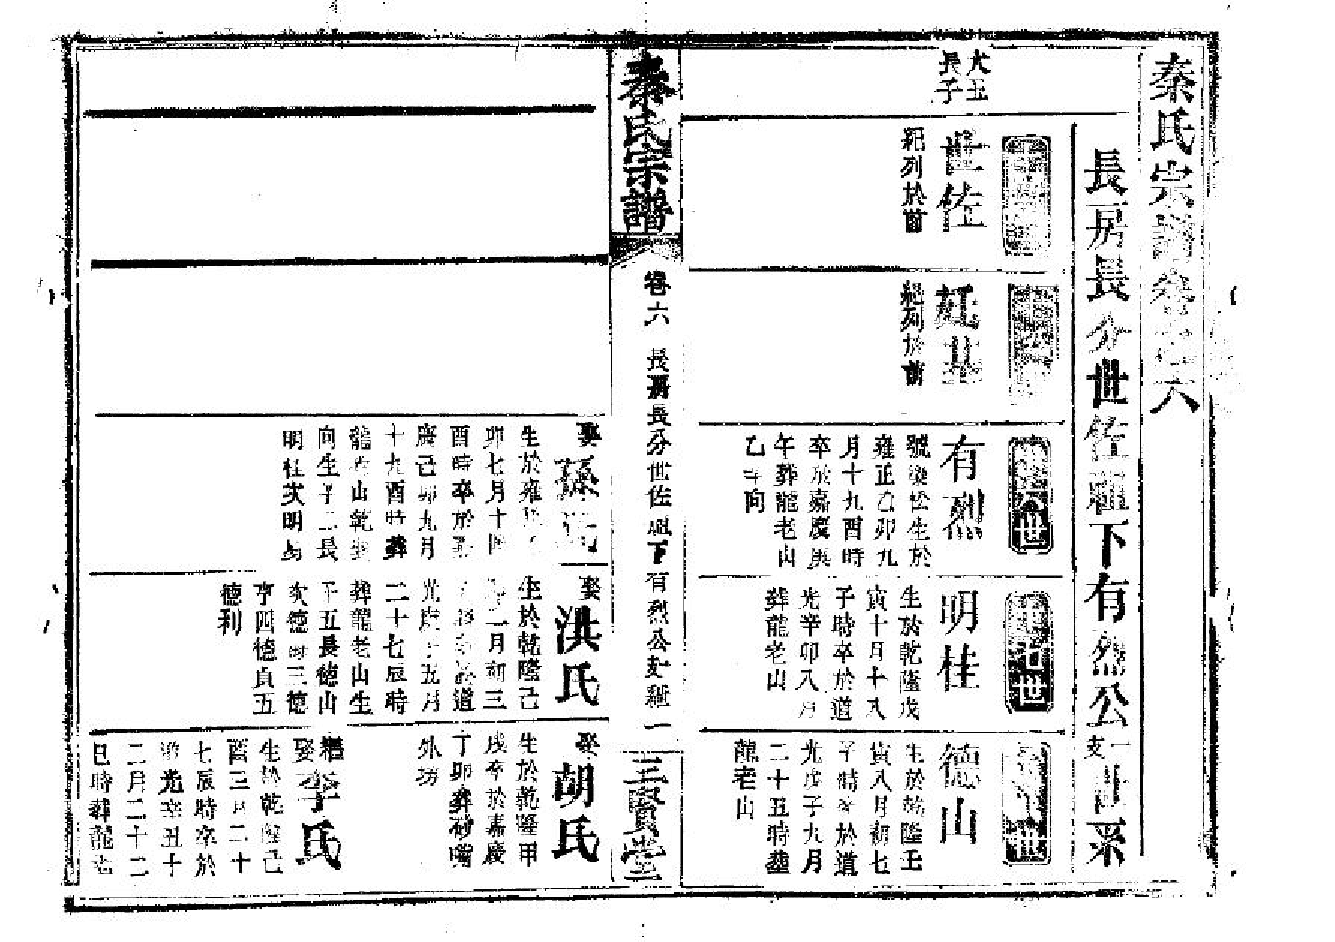 秦氏宗譜卷之六
長房長分世佐祖下有烈公一支世系
大玉
長子
世佐
紀列於前
廷基
紀列於前
有烈
號
生於
雍正乙卯九
月十九酉時
卒於嘉慶庚
午葬龍老山
乙 向
明桂
生於乾隆戊
寅十月十八
子時卒於道
光辛卯八月
葬龍老山
德山
生於乾隆壬
寅八月初七
子時卒於道
光戊子九月
二十五時葬
龍老山
秦氏宗譜
卷六
長房長分世佐祖下有烈公支系
一
三賢堂
娶孫氏
生於雍正
卯七月十四
酉時卒於嘉
慶己卯九月
十九酉時葬
龍老山乾巽
向生子二長
明桂次明
娶洪氏
生於乾隆己
二月初三
道
光戊子五月
二十七辰時
葬龍老山生
子五長德山
次德 三德
亨四德貞五
德利
娶胡氏
生於乾隆甲
戌卒於嘉慶
丁卯葬砂嘴
外坊
繼娶李氏
生於乾隆己
酉三月二十
七辰時卒於
道光辛丑十
二月二十二
巳時葬龍老